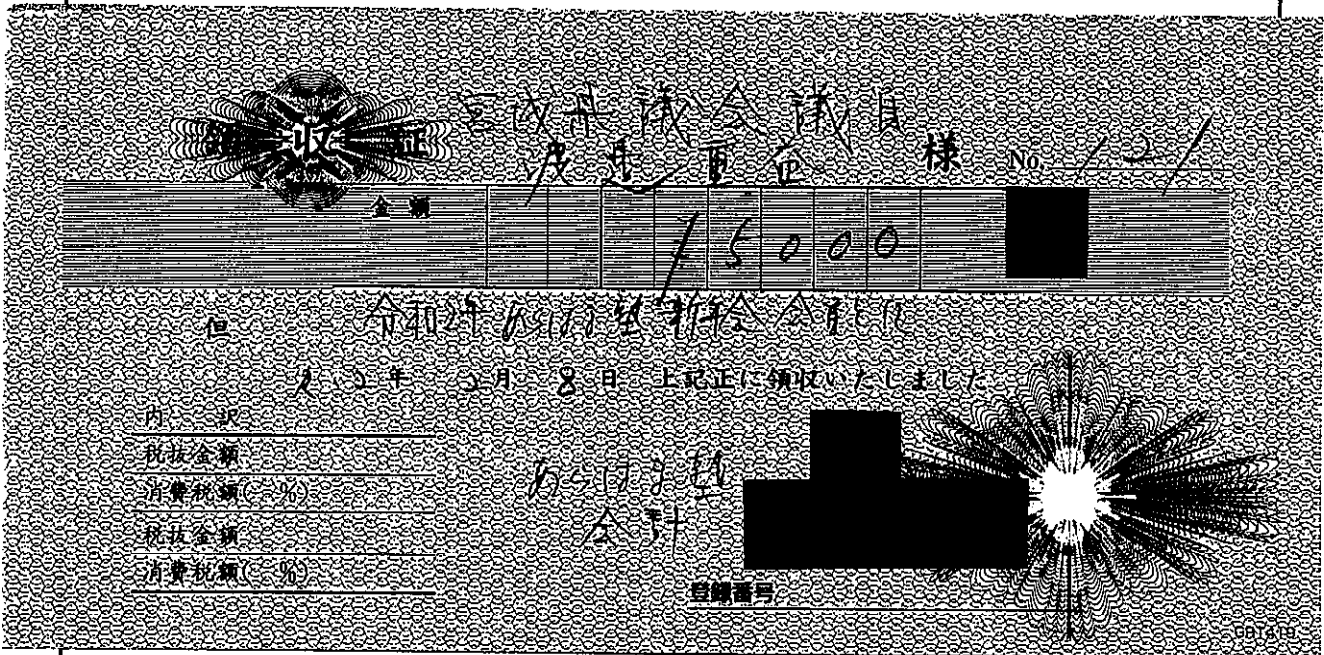 領収証
宮城県議会議員
渡邉重益 様 No. 121
金額 ¥5000
但 令和2年 あらはま塾 新年会 会費として
R2年 2月 8日 上記正に領収いたしました
内訳
税抜金額
消費税額( %)
税抜金額
消費税額( %)
あらはま塾
会計
登録番号